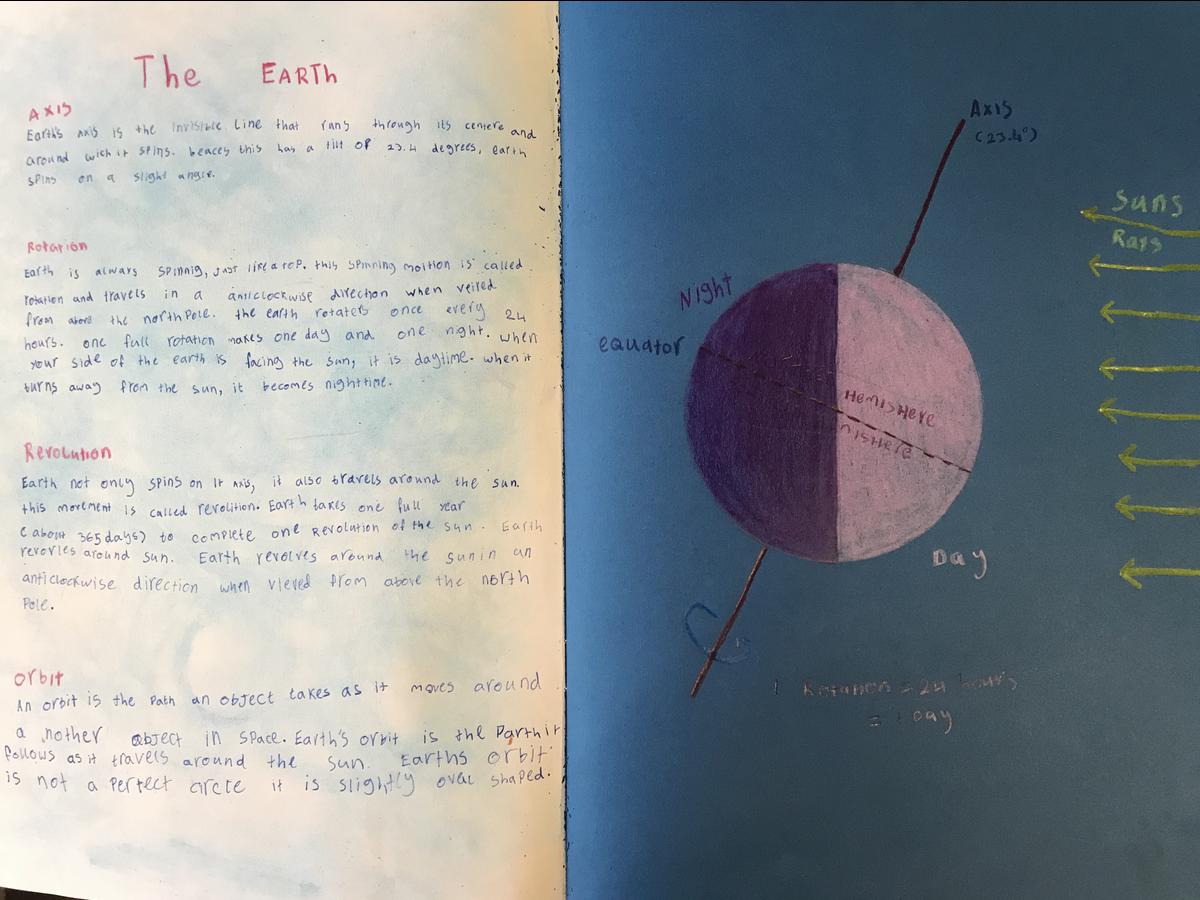 The EARTh
Axis
Earth's axis is the invisible Line that runs through its centere and
around wich it spins. beaces this has a tilt of 23.4 degrees, earth
spins on a slight angle.
Rotation
Earth is always spinnig, Just like a top. this spinning moition is called
rotation and travels in a anticlockwise direction when veiwed
from above the north Pole. the earth rotates once every 24
hours. one full rotation makes one day and one night. when
your side of the earth is facing the sun, it is daytime. when it
turns away from the sun, it becomes night time.
Revolution
Earth not only spins on It axis, it also travels around the sun.
this movement is called revolition. Earth takes one full year
(about 365 days) to complete one Revolution of the sun. Earth
revovles around sun. Earth revolves around the sun in an
anticlockwise direction when vieved from above the north
Pole.
orbit
An orbit is the Path an object takes as it moves around
a nother object in space. Earth's orbit is the Parth it
follows as it travels around the sun. Earths orbit
is not a Perfect circle it is slightly oval shaped.
Axis
(23.4°)
Suns
Rays
Night
equator
HemisHere
nisHere
Day
1 Rotation = 24 hours
= 1 Day